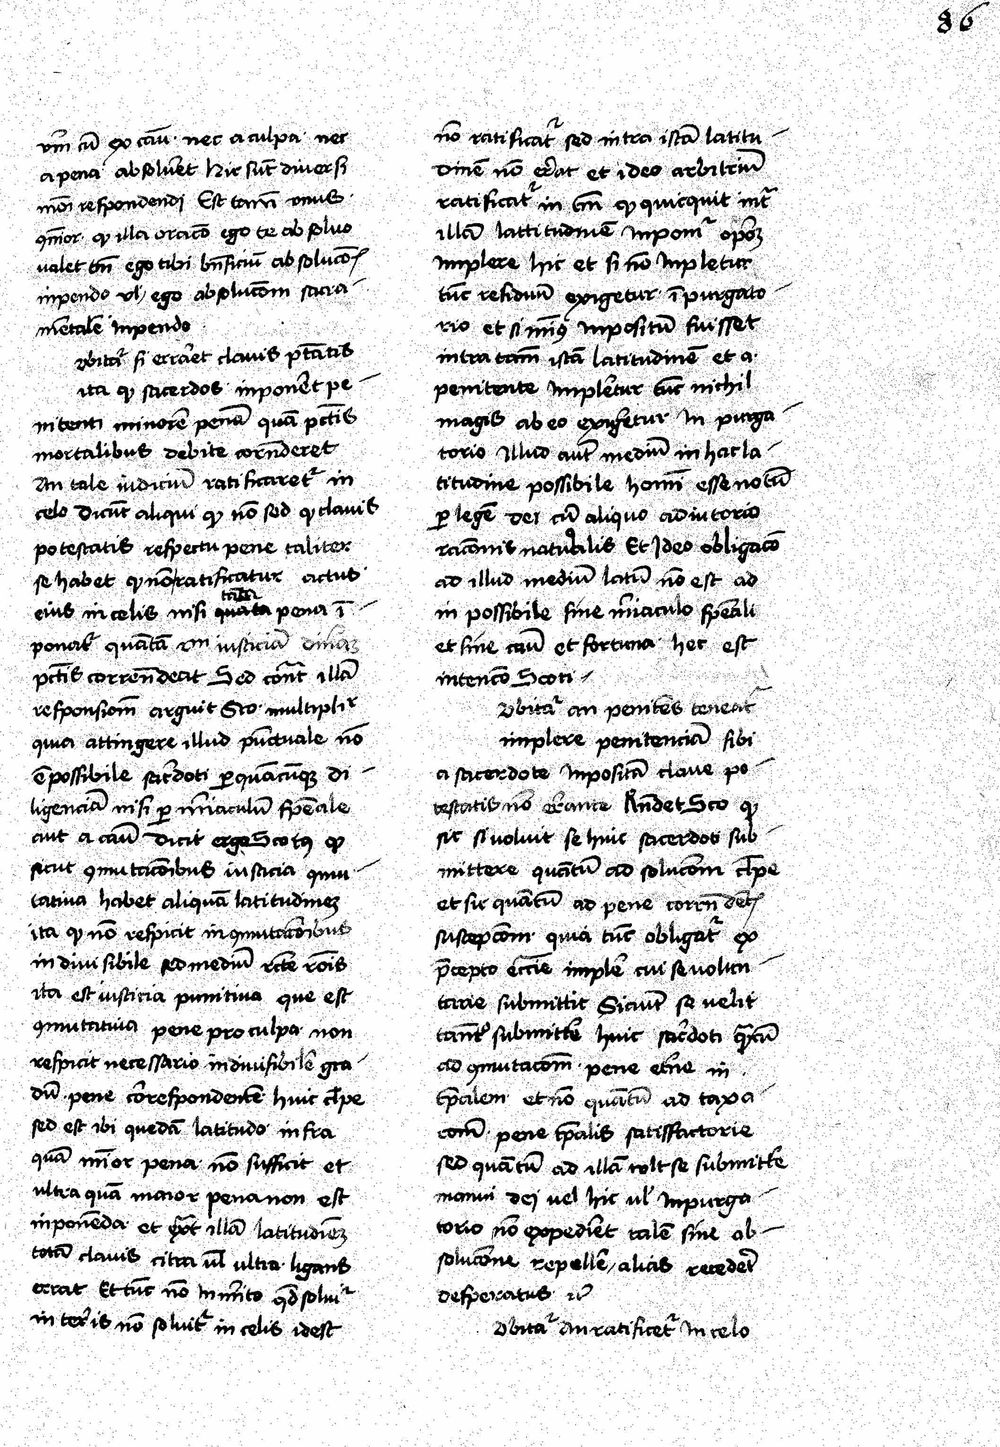 86
vnū cū ex cāu nec a culpa nec
a pena absolueret hic sūt diuersi
modi respondendi Est tamē vnus
9mior qͥ illa oracō ego te absoluo
ualet tm̄ ego tibi bn̄ficiū absolucōis
inpendo vl' ego absolucōm sacra-
mētalē inpendo
vbitatʳ si erraret clauis ptātis
ita qͥ sacerdos inponeret pe-
nitenti minorē penā quā pctīs
mortalibus debite corrn̄deret
An tale iudiciū ratificaretʳ in
celo Dicūt aliqui qͥ nō sed qͥ clauis
potestatis respectu pene taliter
se habet qͥ nō ratificatur actus
eius in celis nisi tāta pena ī-
ponatʳ quātā vm iusticiā diuinā
pctīs corrn̄deat Sed cōtra illā
responsionē arguit Sco multiplr
quia attingere illud pūctuale nō
ē possibile sacrdoti per quācūqz di-
ligenciā nisi per mīraculum spēale
aut a cāu Dicit ergo Scotus qͥ
sicut 9mutacōibus iusticia 9mu-
tatiua habet aliquā latitudinez
ita qͥ nō respicit in 9mutacōibus
indiuisibile sed mediū rcte rōis
ita est iusticia punitiua que est
9mutatiua pene pro culpa non
respicit necessario indiuisibilē gra-
dū pene corespondentē huic clpe
sed est ibi quedā latitudo infra
quā mīor pena nō sufficit et
ultra quā maior pena non est
inponēda et extra illā latitudinez
totā clauis citra vel ultra ligans
errat Et tūc nō īmerito qd soluitʳ
in terris nō soluitʳ in celis idest
nō ratificatʳ sed intra istā latitu-
dinē nō errat et ideo arbitriū
ratificatʳ in tm̄ qͥ quicquit intra
illā lattitudinē Inponitʳ oportz
Implere hic et si nō Inpletur
tūc residuū exigetur ī purgato-
rio et si minus Inpositū fuisset
intra tamē istā latitudinē et a
penitente Implēetur tūc nichil
magis ab eo exigetur In purga-
torio Illud autē mediū in hac la-
titudine possibile homī esse notū
per legē dei cū aliquo adiutorio
racōnis naturalis Et Ideo obligacō
ad illud mediū latū nō est ad
in possibile sine mīraculo spēali
et sine cāu et fortuna hec est
intencō Scoti
vbitatʳ an penitēs teneatʳ
implere penitenciā sibi
a sacerdote Impositā claue po-
testatis nō errante Rn̄det Sco qͥ
sic si voluit se huic sacerdoti sub-
mittere quātū ad solucōm clpe
et sic quātū ad pene corrn̄dētis
suscepcōm quia tūc obligatʳ ex
p̄cepto eccie implēr cui se volun-
tarie submittit Si autē se velit
tantū submittēre huic sacrdoti quātū
ad 9mutacōm pene etne in
tp̄alem et nō quātū ad taxa-
cōm pene tp̄alis satisfactorie
sed quātū ad illā volt se submittēre
manui dei vel hic vl' Inpurga-
torio nō expediret talē sine ab-
solucōne repellē, alias recederet
desperatus
vbitatʳ An ratificetʳ In celo